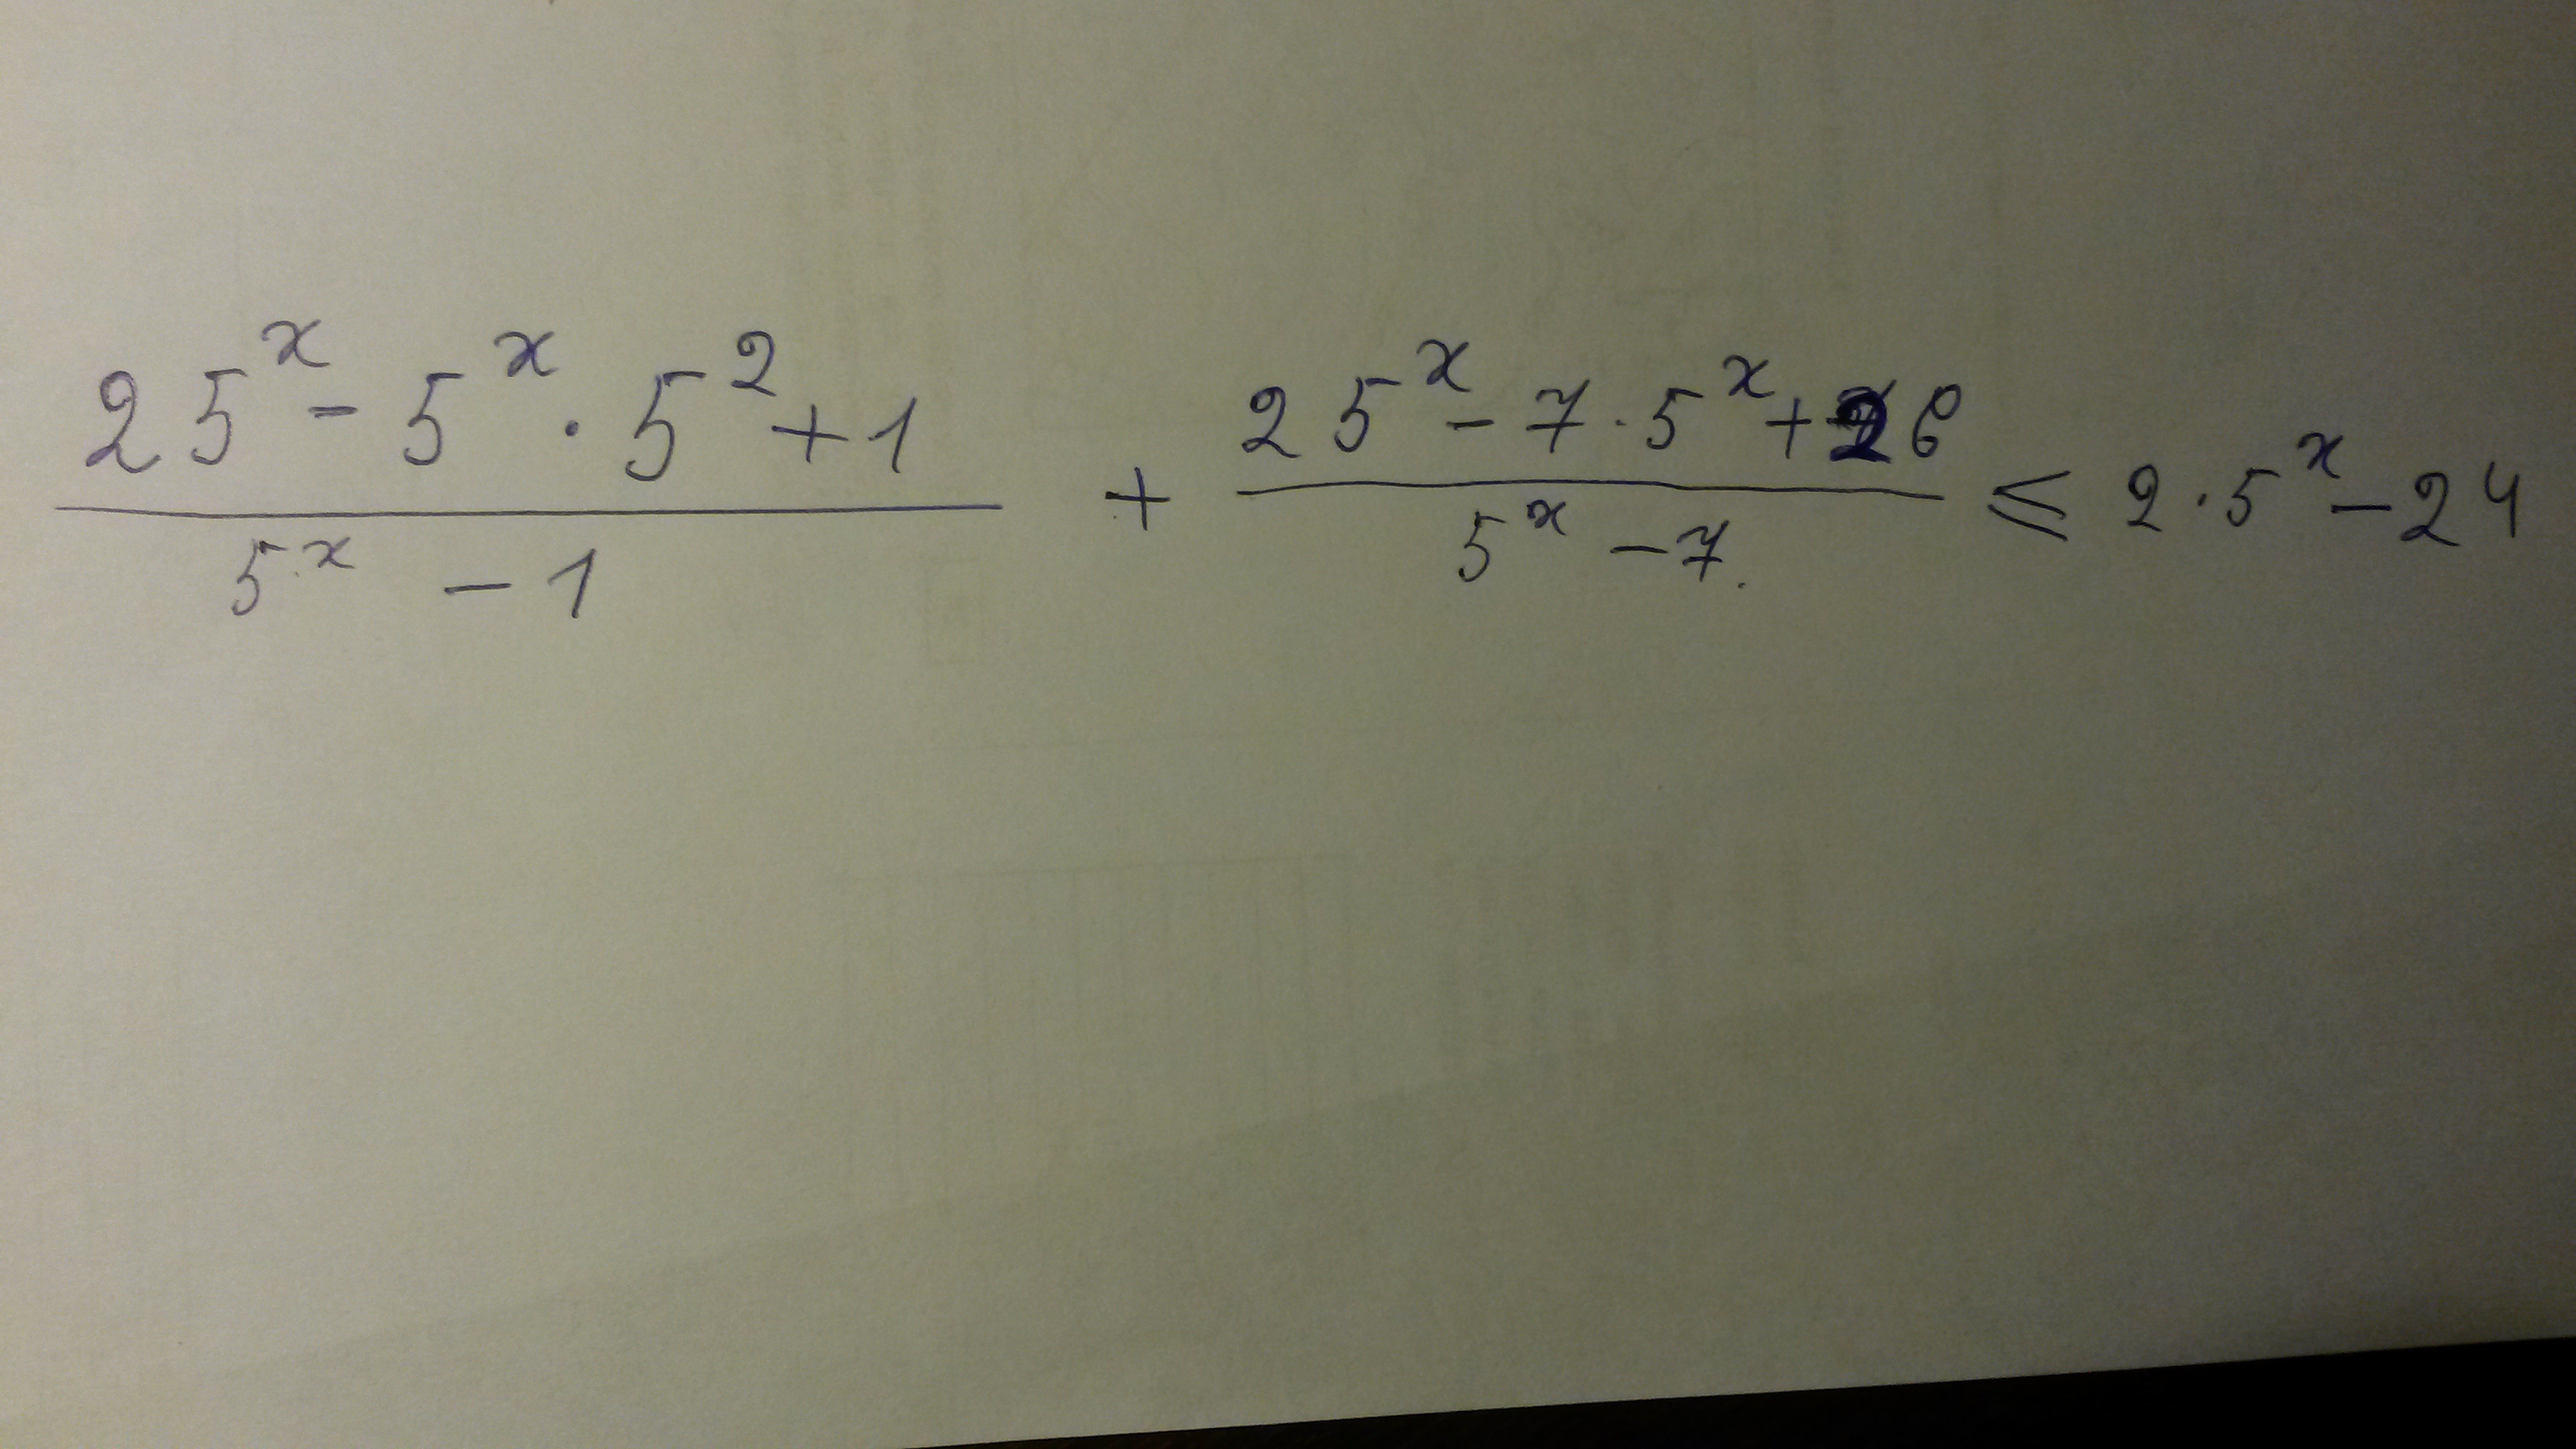 (25^x - 5^x · 5^2 + 1)/(5^x - 1) + (25^x - 7 · 5^x + 26)/(5^x - 7) ≤ 2 · 5^x - 24